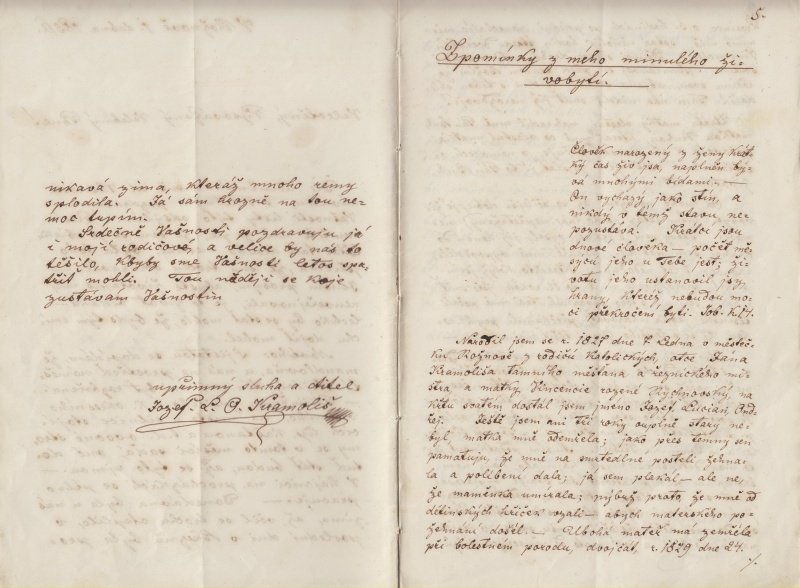 nikavá zima, kteráž mnoho rémy
splodila. Já sám hrozně na tou ne-
moc trpím.
Srdečně Vašnostj pozdravuju já
i moji rodičové, a velice by nás to
těšilo, kbyby sme Vašnosti letos spa-
třit mohli. Tou nadějí se koje
zustávam Vašnostin
upřímný sluha a ctitel
Jozef L. O. Kramoliš
5.
Zpomínky z mého minulého ži-
vobytí.
Člověk narozený z ženy krát-
ký čas živ jsa, naplněn bý-
vá mnohými bídami. —
On vychazý jako stín, a
nikdý v temž stavu ne-
pozustává. Kratcí jsou
dnové člověka — počet mě-
sýcu jeho u Tebe jest; ži-
votu jeho ustanovil jsy
hrany, kteréž nebudou mo-
ci překročeni býti. Job. K.14.
Narodil jsem se r. 1827 dne 7. Ledna v městeč-
ku Rožnově z rodiču katolických, otce Jana
Kramoliša tamního měštana a řeznického mi-
stra, a matky Vincencie rozené Rychnovský, na
křtu svatém dostal jsem jmeno Jozef, Lucian, Ond-
řej. Ještě jsem ani tři roky ouplně starý ne-
byl, matka mně odemřela; jako přes temný sen
pamatuju, že mně na smrtedlné posteli žehna-
la a políbení dala; já sem plakál — ale ne,
že maměnka umírala; nýbrž proto, že mně od
dětinských hříček vzali — abych mateřského po-
žehnání došel. — Ubohá mateř má zemřela
při bolestném porodu, dvojčat, r. 1829 dne 24.
./.